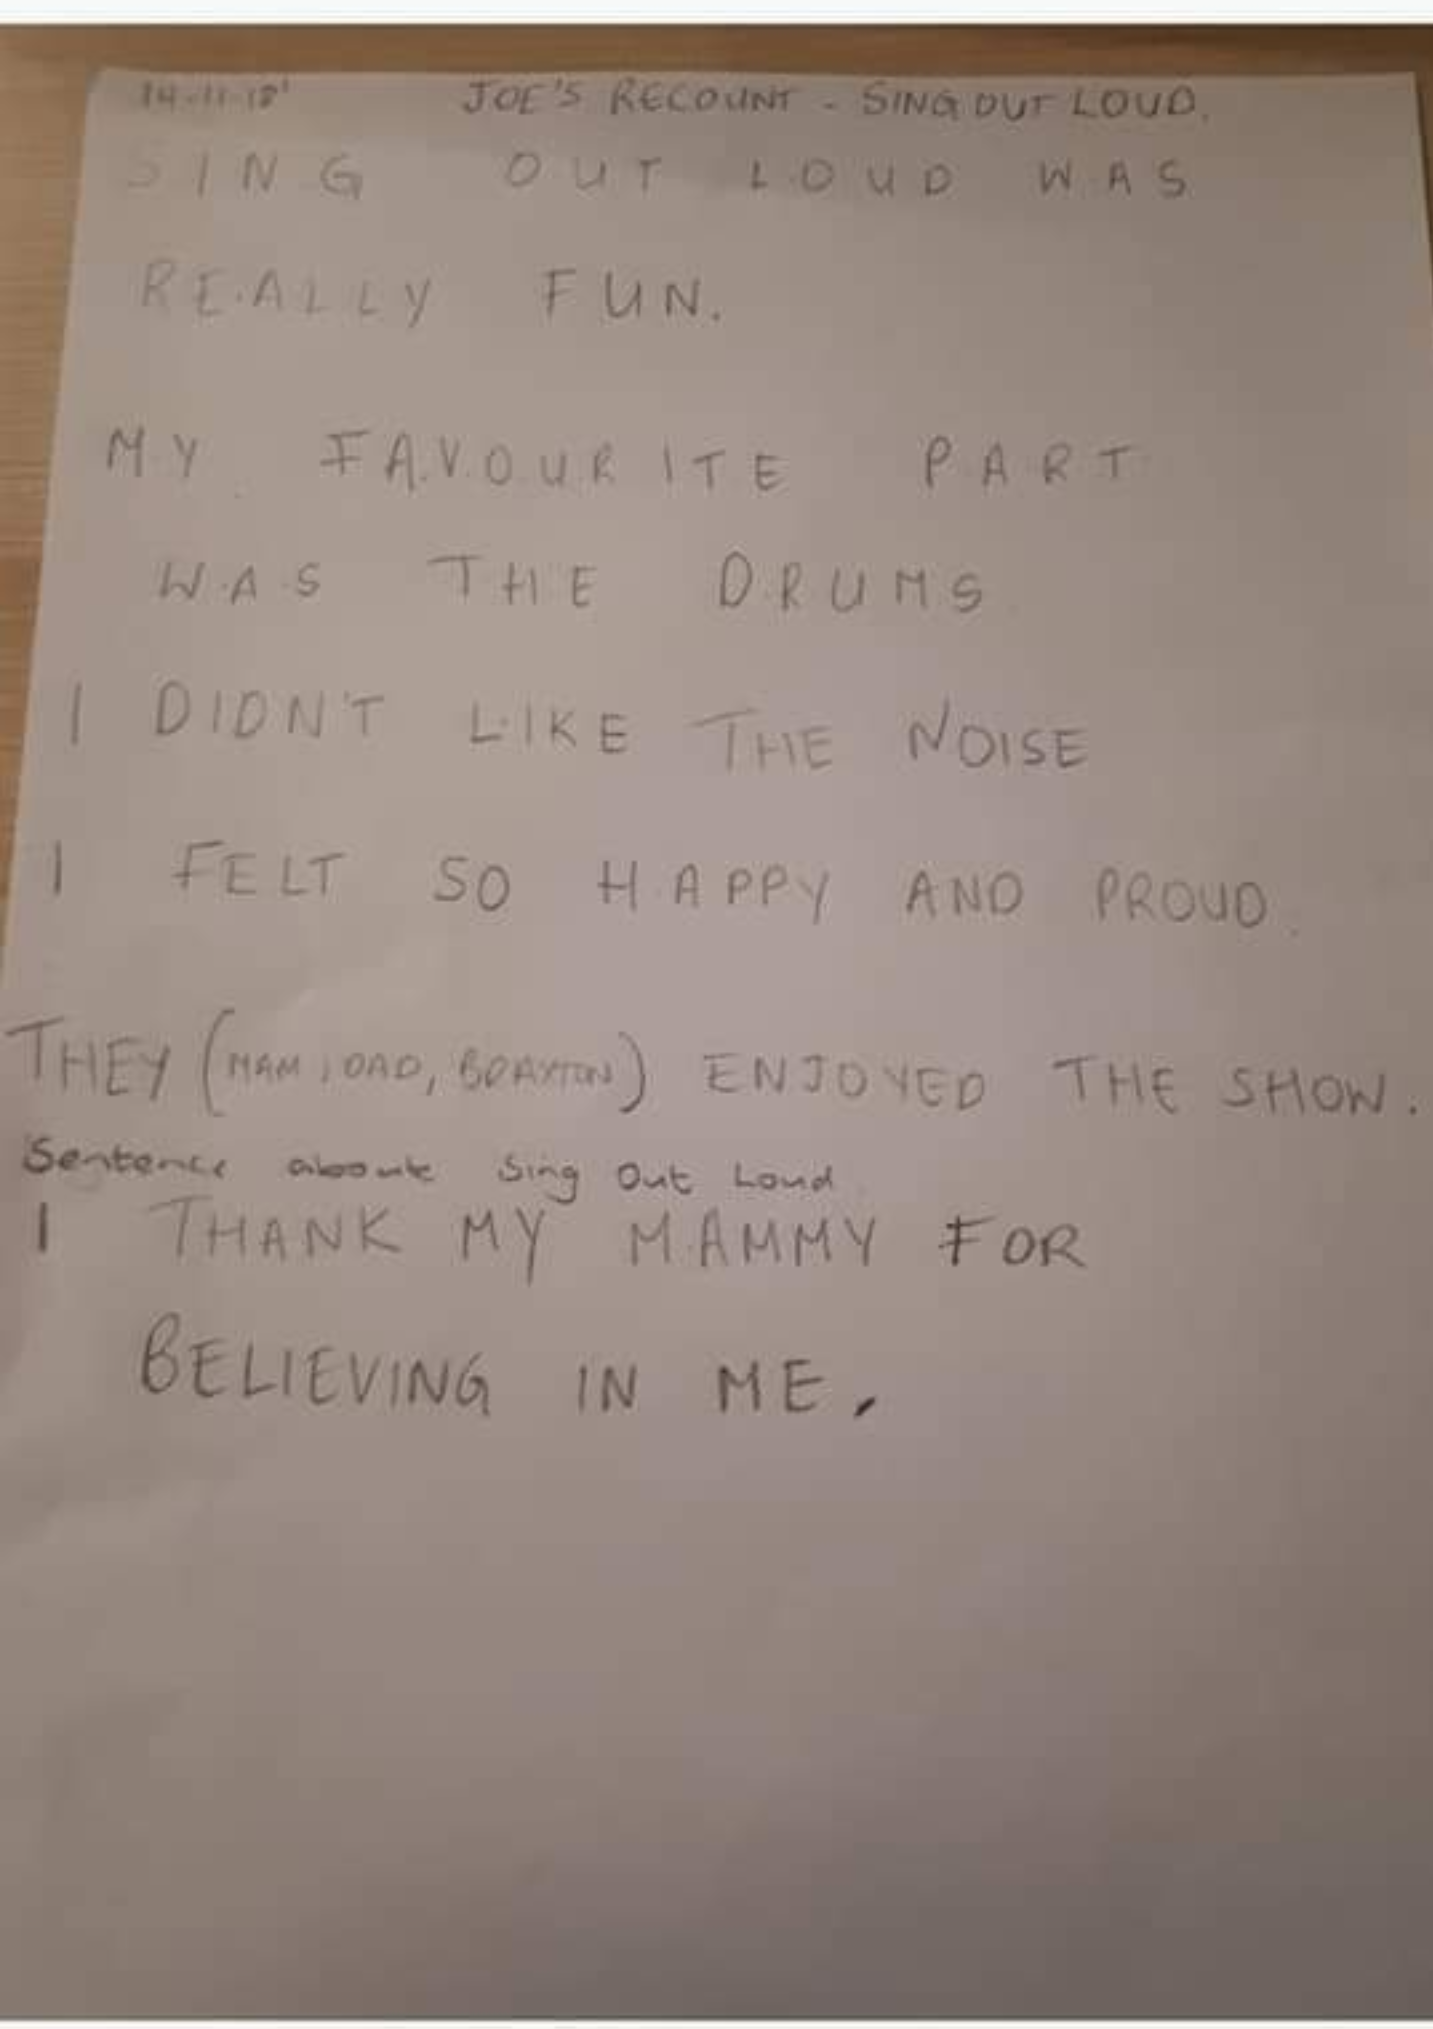 14-11-18' JOE'S RECOUNT - SING OUT LOUD.
SING OUT LOUD WAS
REALLY FUN.
MY FAVOURITE PART
WAS THE DRUMS
I DIDN'T LIKE THE NOISE
I FELT SO HAPPY AND PROUD.
THEY (MAM, DAD, BRAXTON) ENJOYED THE SHOW.
Sentence about Sing Out Loud
I THANK MY MAMMY FOR
BELIEVING IN ME.